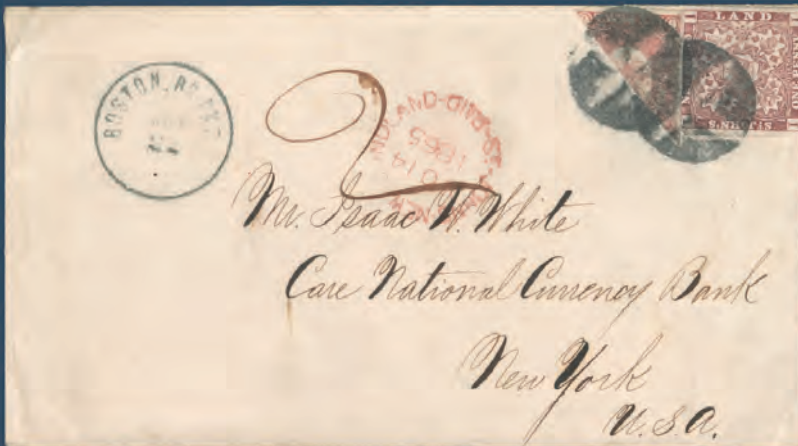 BOSTON, BR. PKT
2
1865
LAND
STERLING
Mr. Isaac W. White
Care National Currency Bank
New York
U.S.A.